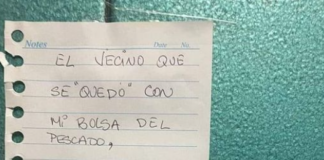 Notes Date No.
EL VECINO QUE
SE "QUEDÓ" CON
Mi BOLSA DEL
PESCADO,